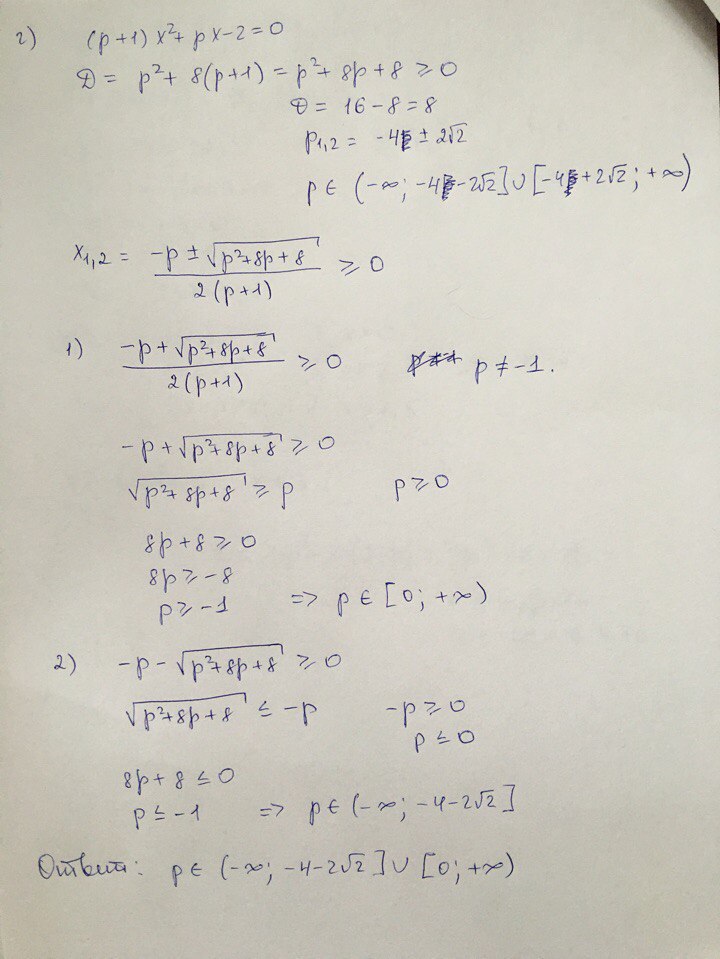 2) (p+1)x²+px-2=0
D = p²+8(p+1) = p²+8p+8 ≥ 0
D = 16-8=8
p₁,₂ = -4 ± 2√2
p ∈ (-∞; -4-2√2] ∪ [-4+2√2; +∞)
x₁,₂ = (-p ± √(p²+8p+8)) / (2(p+1)) ≥ 0
1) (-p+√(p²+8p+8)) / (2(p+1)) ≥ 0 p ≠ -1.
-p+√(p²+8p+8) ≥ 0
√(p²+8p+8) ≥ p p ≥ 0
8p+8 ≥ 0
8p ≥ -8
p ≥ -1 => p ∈ [0; +∞)
2) -p-√(p²+8p+8) ≥ 0
√(p²+8p+8) ≤ -p -p ≥ 0
p ≤ 0
8p+8 ≤ 0
p ≤ -1 => p ∈ (-∞; -4-2√2]
Ответ: p ∈ (-∞; -4-2√2] ∪ [0; +∞)